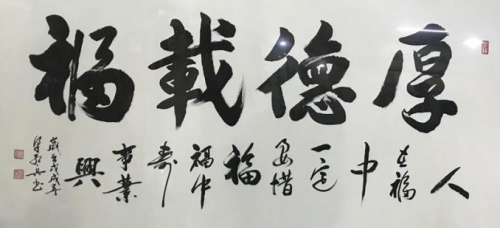 厚德載福
人在福中一定要惜福福中寿事業興
歲在戊戌年
书